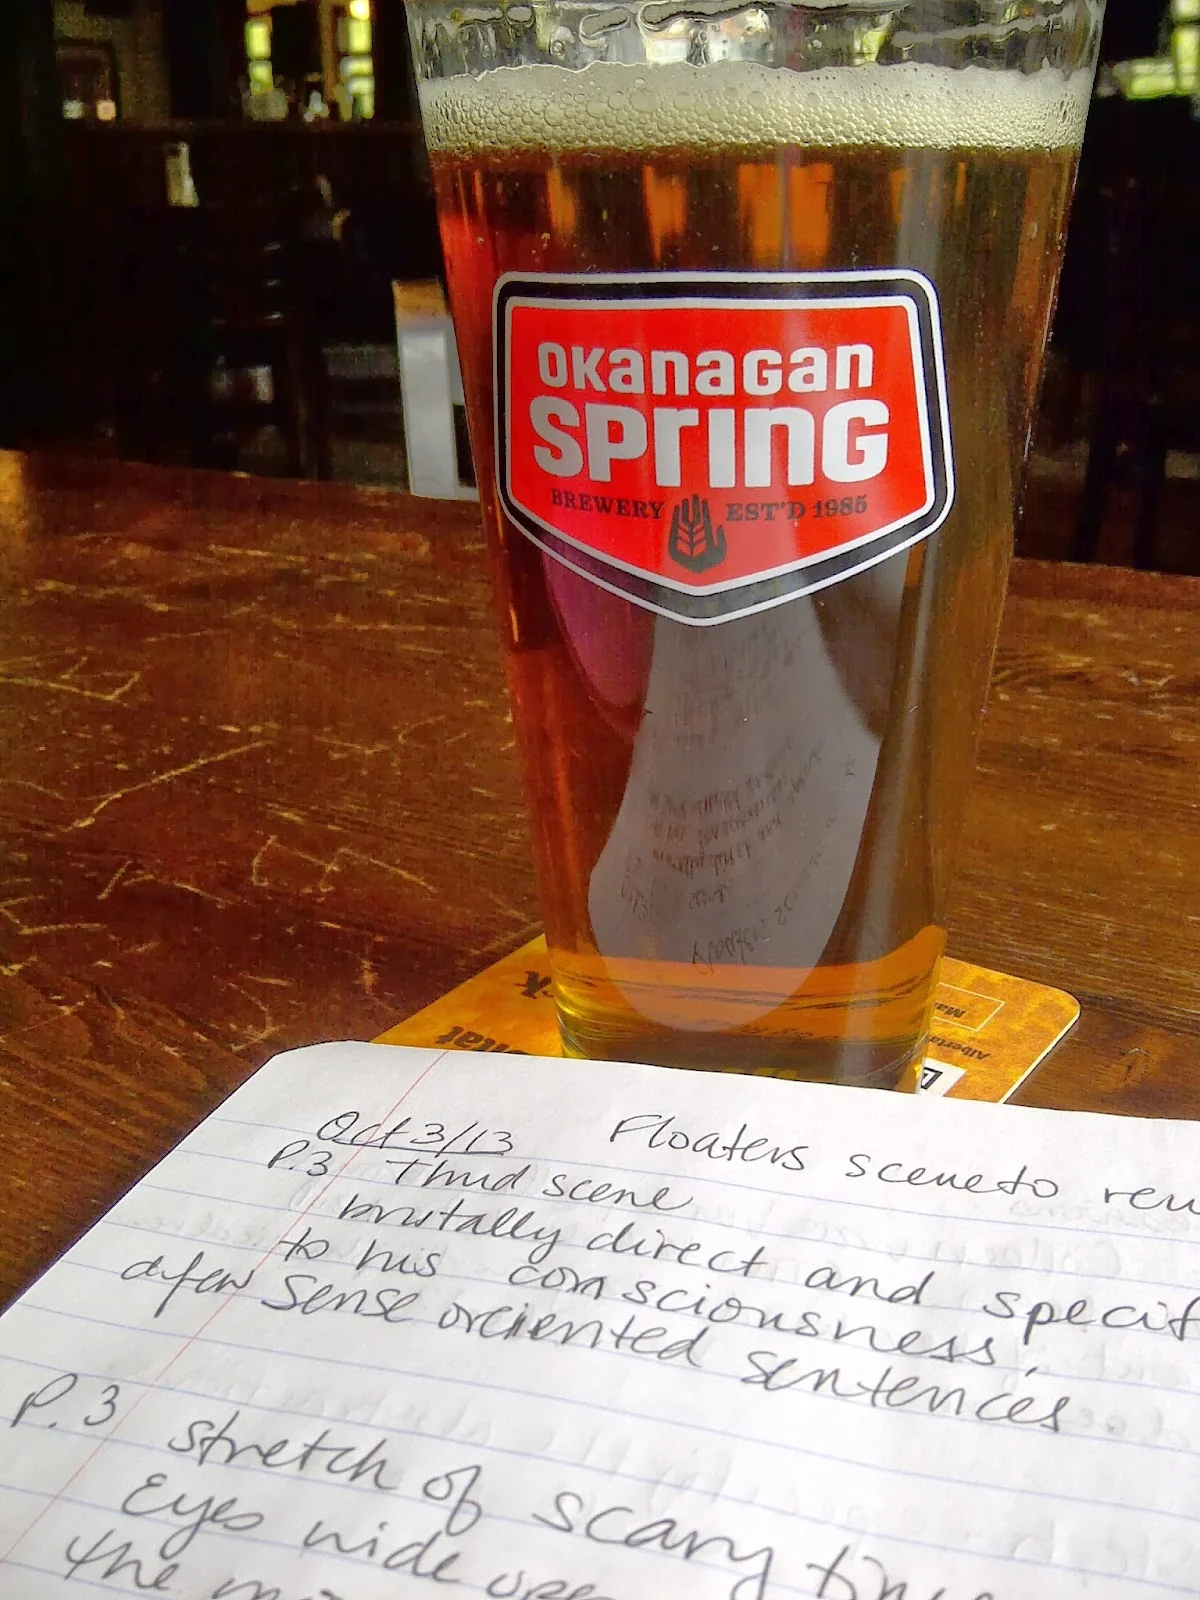 OKanaGan
SPrinG
BREWERY EST'D 1985
Oct 3/13 Floaters scene to
P.3 Thud scene
brutally direct and specif
to his consciousness.
a few sense orciented sentences
P.3 stretch of scary
Eyes wide
the